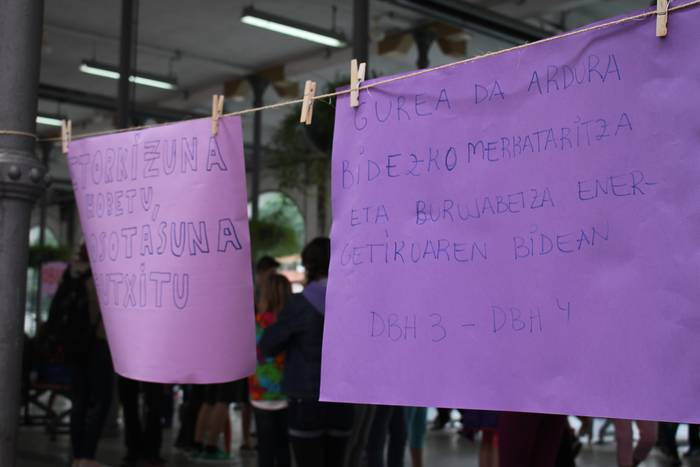 ETORKIZUNA
HOBETU,
PASOTASUNA
GUTXITU
GUREA DA ARDURA
BIDEZKO MERKATARITZA
ETA BURUJABETZA ENER-
GETIKOAREN BIDEAN
DBH 3 - DBH 4